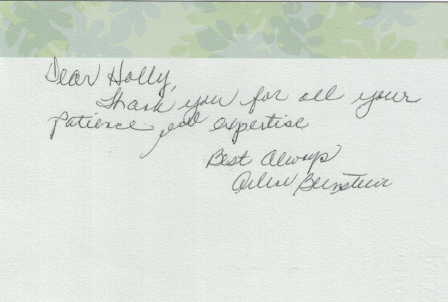 Dear Holly,
Thank you for all your
patience and expertise
Best Always
Bernstein